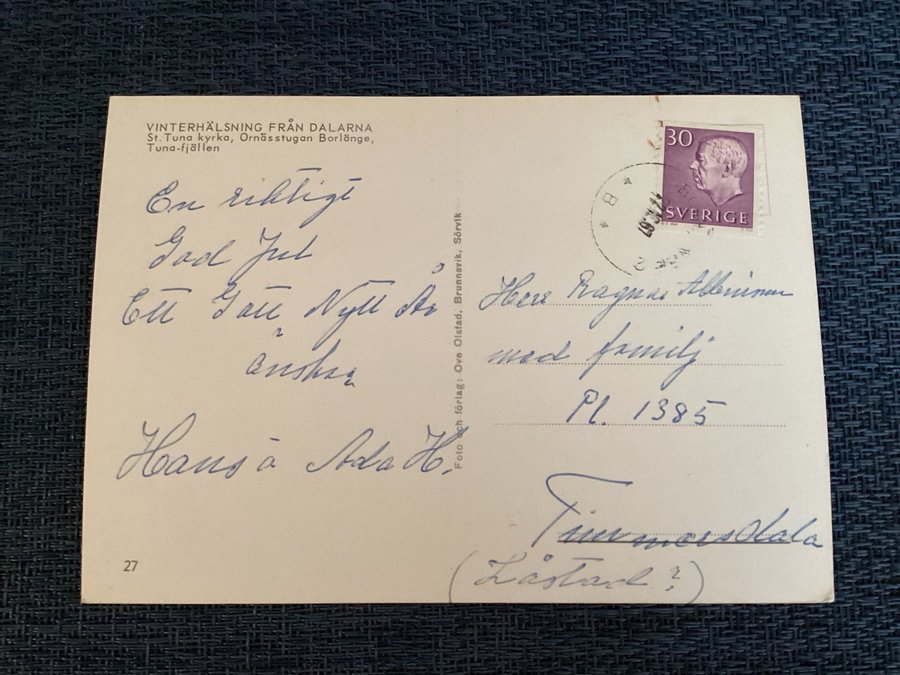 VINTERHÄLSNING FRÅN DALARNA
St. Tuna kyrka, Ornässtugan Borlänge,
Tuna-fjällen
En riktigt
God Jul
Ett Gott Nytt År
önskar
Hans o Ada H.
27
Foto och förlag: Ove Olstad, Brunnsvik, Sörvik
30
SVERIGE
B
Herr Ragnar
med familj
Pl. 1385
Timmersdala
(Låstad?)